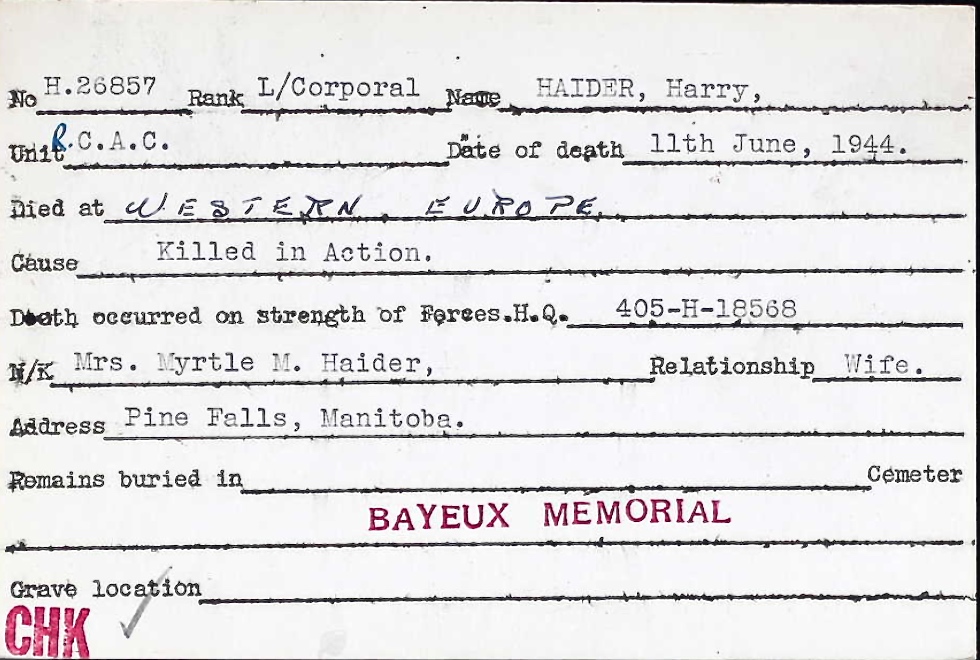 No H.26857 Rank L/Corporal Name HAIDER, Harry,
Unit R.C.A.C. Date of death 11th June, 1944.
Died at WESTERN EUROPE.
Cause Killed in Action.
Death occurred on strength of Forces.H.Q. 405-H-18568
N/K Mrs. Myrtle M. Haider, Relationship Wife.
Address Pine Falls, Manitoba.
Remains buried in Cemeter
BAYEUX MEMORIAL
Grave location
CHK